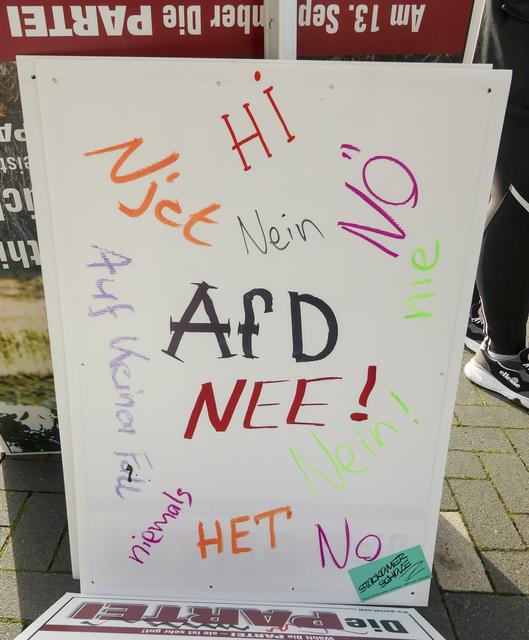 Am 13. Sep mber Die PARTEI
Hi
Njet
Nein
NÖ
nie
Auf Keinen Fall
AfD
NEE!
Nein!
niemals
НЕТ
No
STOCKUMER
SCHULE
Die PARTEI
Wählt Die PARTEI – sie ist sehr gut!
ellesse